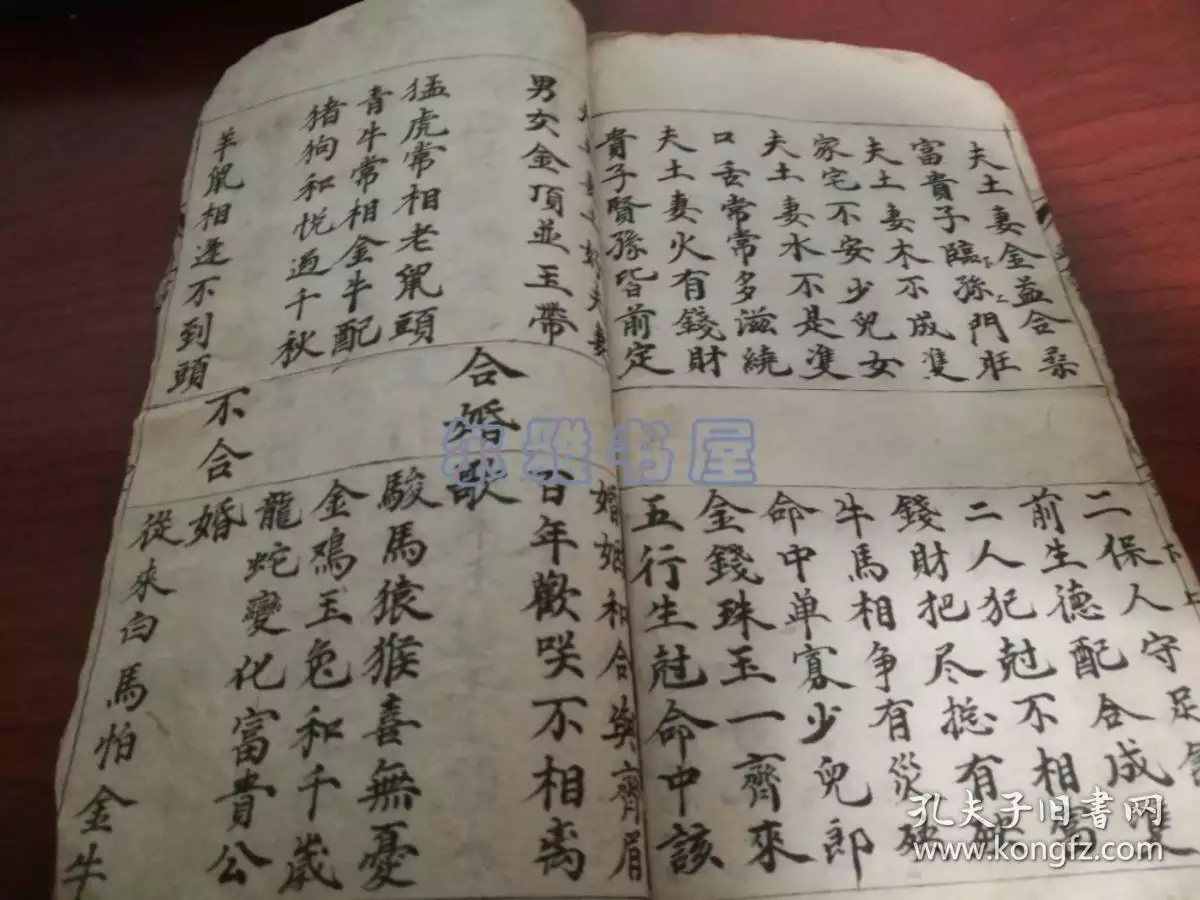 夫土妻金益合
富貴子臨孫門旺
夫土妻木不成雙
家宅不安少兒女
夫土妻水不是雙
口舌常常多滋繞
夫土妻火有錢財
貴子賢孫皆前定
二保人守足
前生德配合成雙
二人犯尅不相
錢財把尽捴有
牛馬相争有災殃
命中单寡少兒郎
金錢珠玉一齊來
五行生尅命中該
夫妻
男女金頂並玉帶
婚姻和合與齊眉
百年歡咲不相离
合婚歌
猛虎常相老鼠頭
青牛常相金牛配
猪狗和悦過千秋
駿馬猿猴喜無憂
金鷄玉兔和千歲
龍蛇變化富貴公
不合婚
羊鼠相逢不到頭
從來白馬怕金牛
雅书屋
孔夫子旧書网
www.kongfz.com